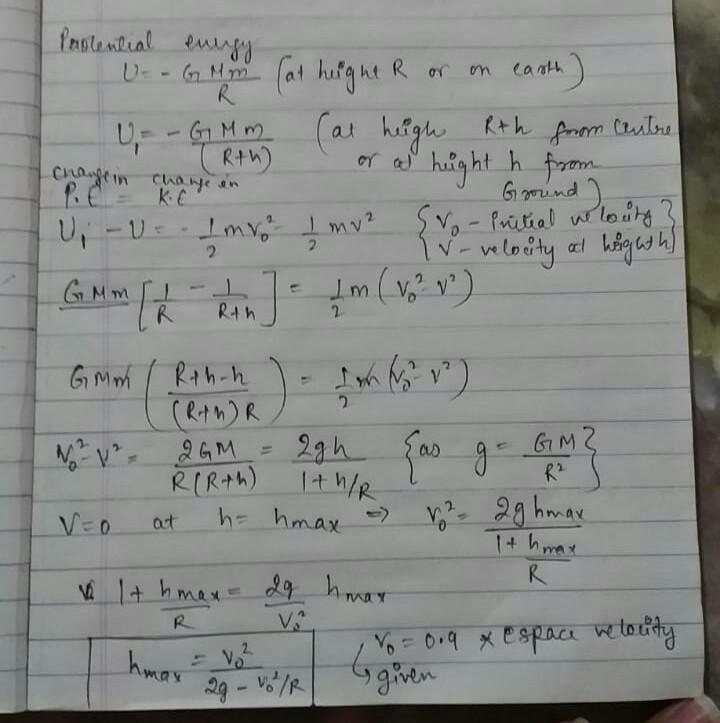 Potential energy
U = - GMm/R (at height R or on earth)
U₁ = - GMm/(R+h) (at heigh R+h from centre
or at height h from
Ground)
change in P.E = change in K.E
U₁ - U = - 1/2 mv₀² - 1/2 mv² {v₀ - Initial velocity}
{v - velocity at height h}
GMm [1/R - 1/R+h] = 1/2 m (v₀² - v²)
GMm (R+h-h/(R+h)R) = 1/2 m (v₀² - v²)
v₀² - v² = 2GM/R(R+h) = 2gh/1+h/R {as g = GM/R²}
V=0 at h = hmax ⇒ v₀² = 2g hmax/1+hmax/R
1 + hmax/R = 2g/v₀² hmax
hmax = v₀²/2g - v₀²/R
v₀ = 0.9 × espace velocity
↳ given